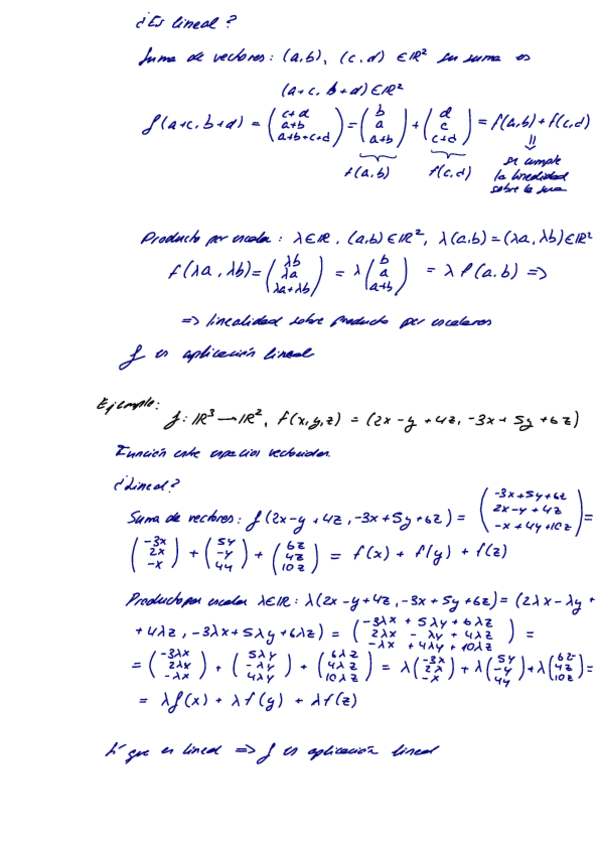 ¿Es lineal?
Suma de vectores: (a,b), (c,d) ∈ ℝ² su suma es
(a+c, b+d) ∈ ℝ²
f(a+c, b+d) = (c+d / a+b / a+b+c+d) = (b / a / a+b) + (d / c / c+d) = f(a,b) + f(c,d)
f(a,b) f(c,d) se cumple
la linealidad
sobre la suma
Producto por escalar: λ∈ℝ, (a,b) ∈ ℝ², λ(a,b) = (λa, λb) ∈ ℝ²
f(λa, λb) = (λb / λa / λa+λb) = λ (b / a / a+b) = λ f(a,b) =>
=> linealidad sobre producto por escalares
f es aplicación lineal
Ejemplo:
f: ℝ³ → ℝ², f(x,y,z) = (2x-y+4z, -3x+5y+6z)
Función entre espacios vectoriales.
¿Lineal?
Suma de vectores: f(2x-y+4z, -3x+5y+6z) = (-3x+5y+6z / 2x-y+4z / -x+4y+10z) =
(-3x / 2x / -x) + (5y / -y / 4y) + (6z / 4z / 10z) = f(x) + f(y) + f(z)
Producto por escalar λ∈ℝ: λ(2x-y+4z, -3x+5y+6z) = (2λx-λy+
+4λz, -3λx+5λy+6λz) = (-3λx+5λy+6λz / 2λx-λy+4λz / -λx+4λy+10λz) =
= (-3λx / 2λx / -λx) + (5λy / -λy / 4λy) + (6λz / 4λz / 10λz) = λ(-3x / 2x / -x) + λ(5y / -y / 4y) + λ(6z / 4z / 10z) =
= λf(x) + λf(y) + λf(z)
Sí que es lineal => f es aplicación lineal